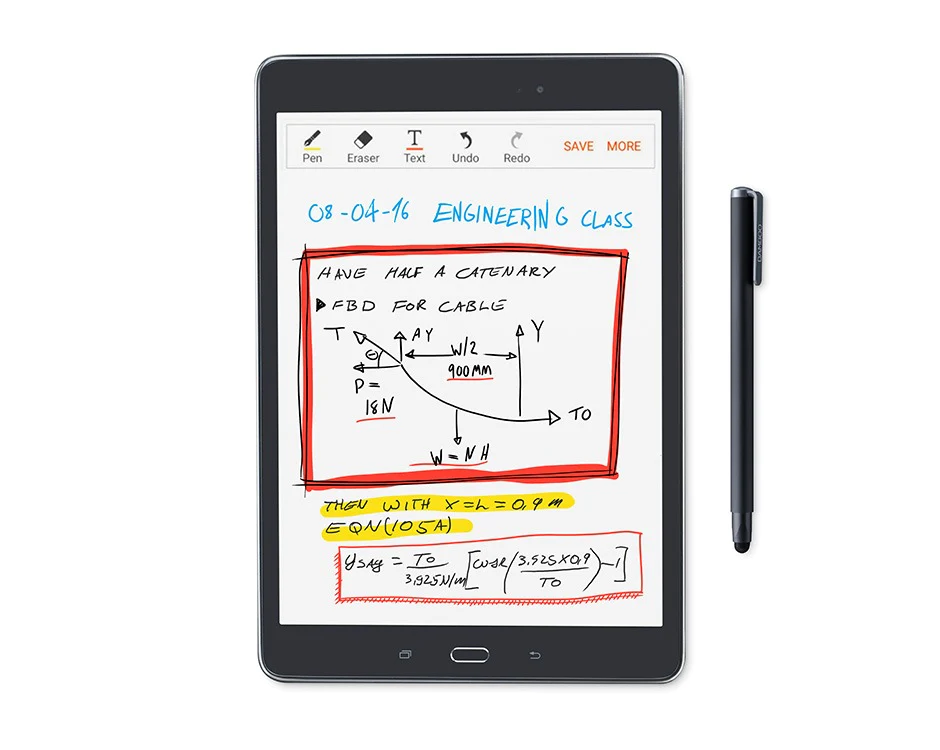 Pen Eraser Text Undo Redo SAVE MORE
08-04-16 ENGINEERING CLASS
HAVE HALF A CATENARY
FBD FOR CABLE
T AY Y
Θ W/2
900MM
P =
18N
TO
W = NH
THEN WITH X=L=0,9 m
EQN(105A)
ySAG = TO / 3,925N/m [COSR (3,925X0,9 / TO) -1]